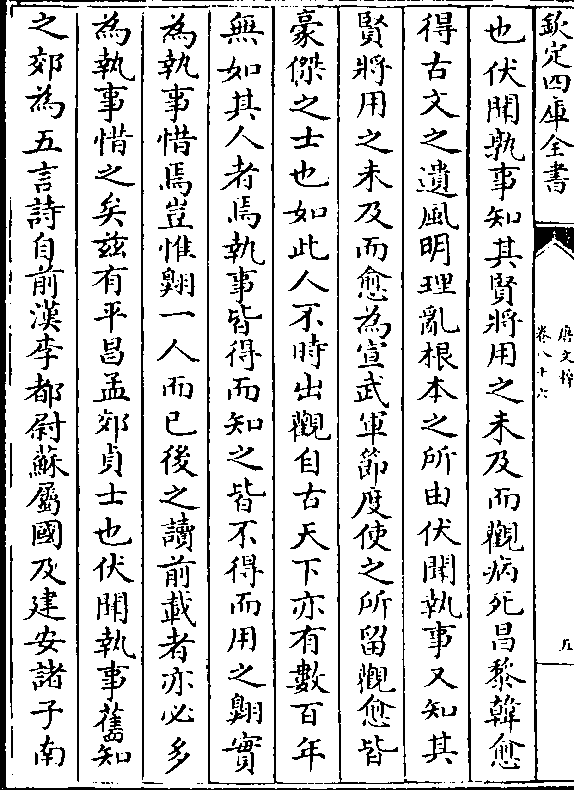 欽定四庫全書
唐文粹
卷八十六
五
也伏聞執事知其賢將用之未及而觀病死昌黎韓愈
得古文之遺風明理亂根本之所由伏聞執事又知其
賢將用之未及而愈為宣武軍節度使之所留觀愈皆
豪傑之士也如此人不時出觀自古天下亦有數百年
無如其人者焉執事皆得而知之皆不得而用之翺實
為執事惜焉豈惟翺一人而已後之讀前載者亦必多
為執事惜之矣兹有平昌孟郊貞士也伏聞執事舊知
之郊為五言詩自前漢李都尉蘇屬國及建安諸子南